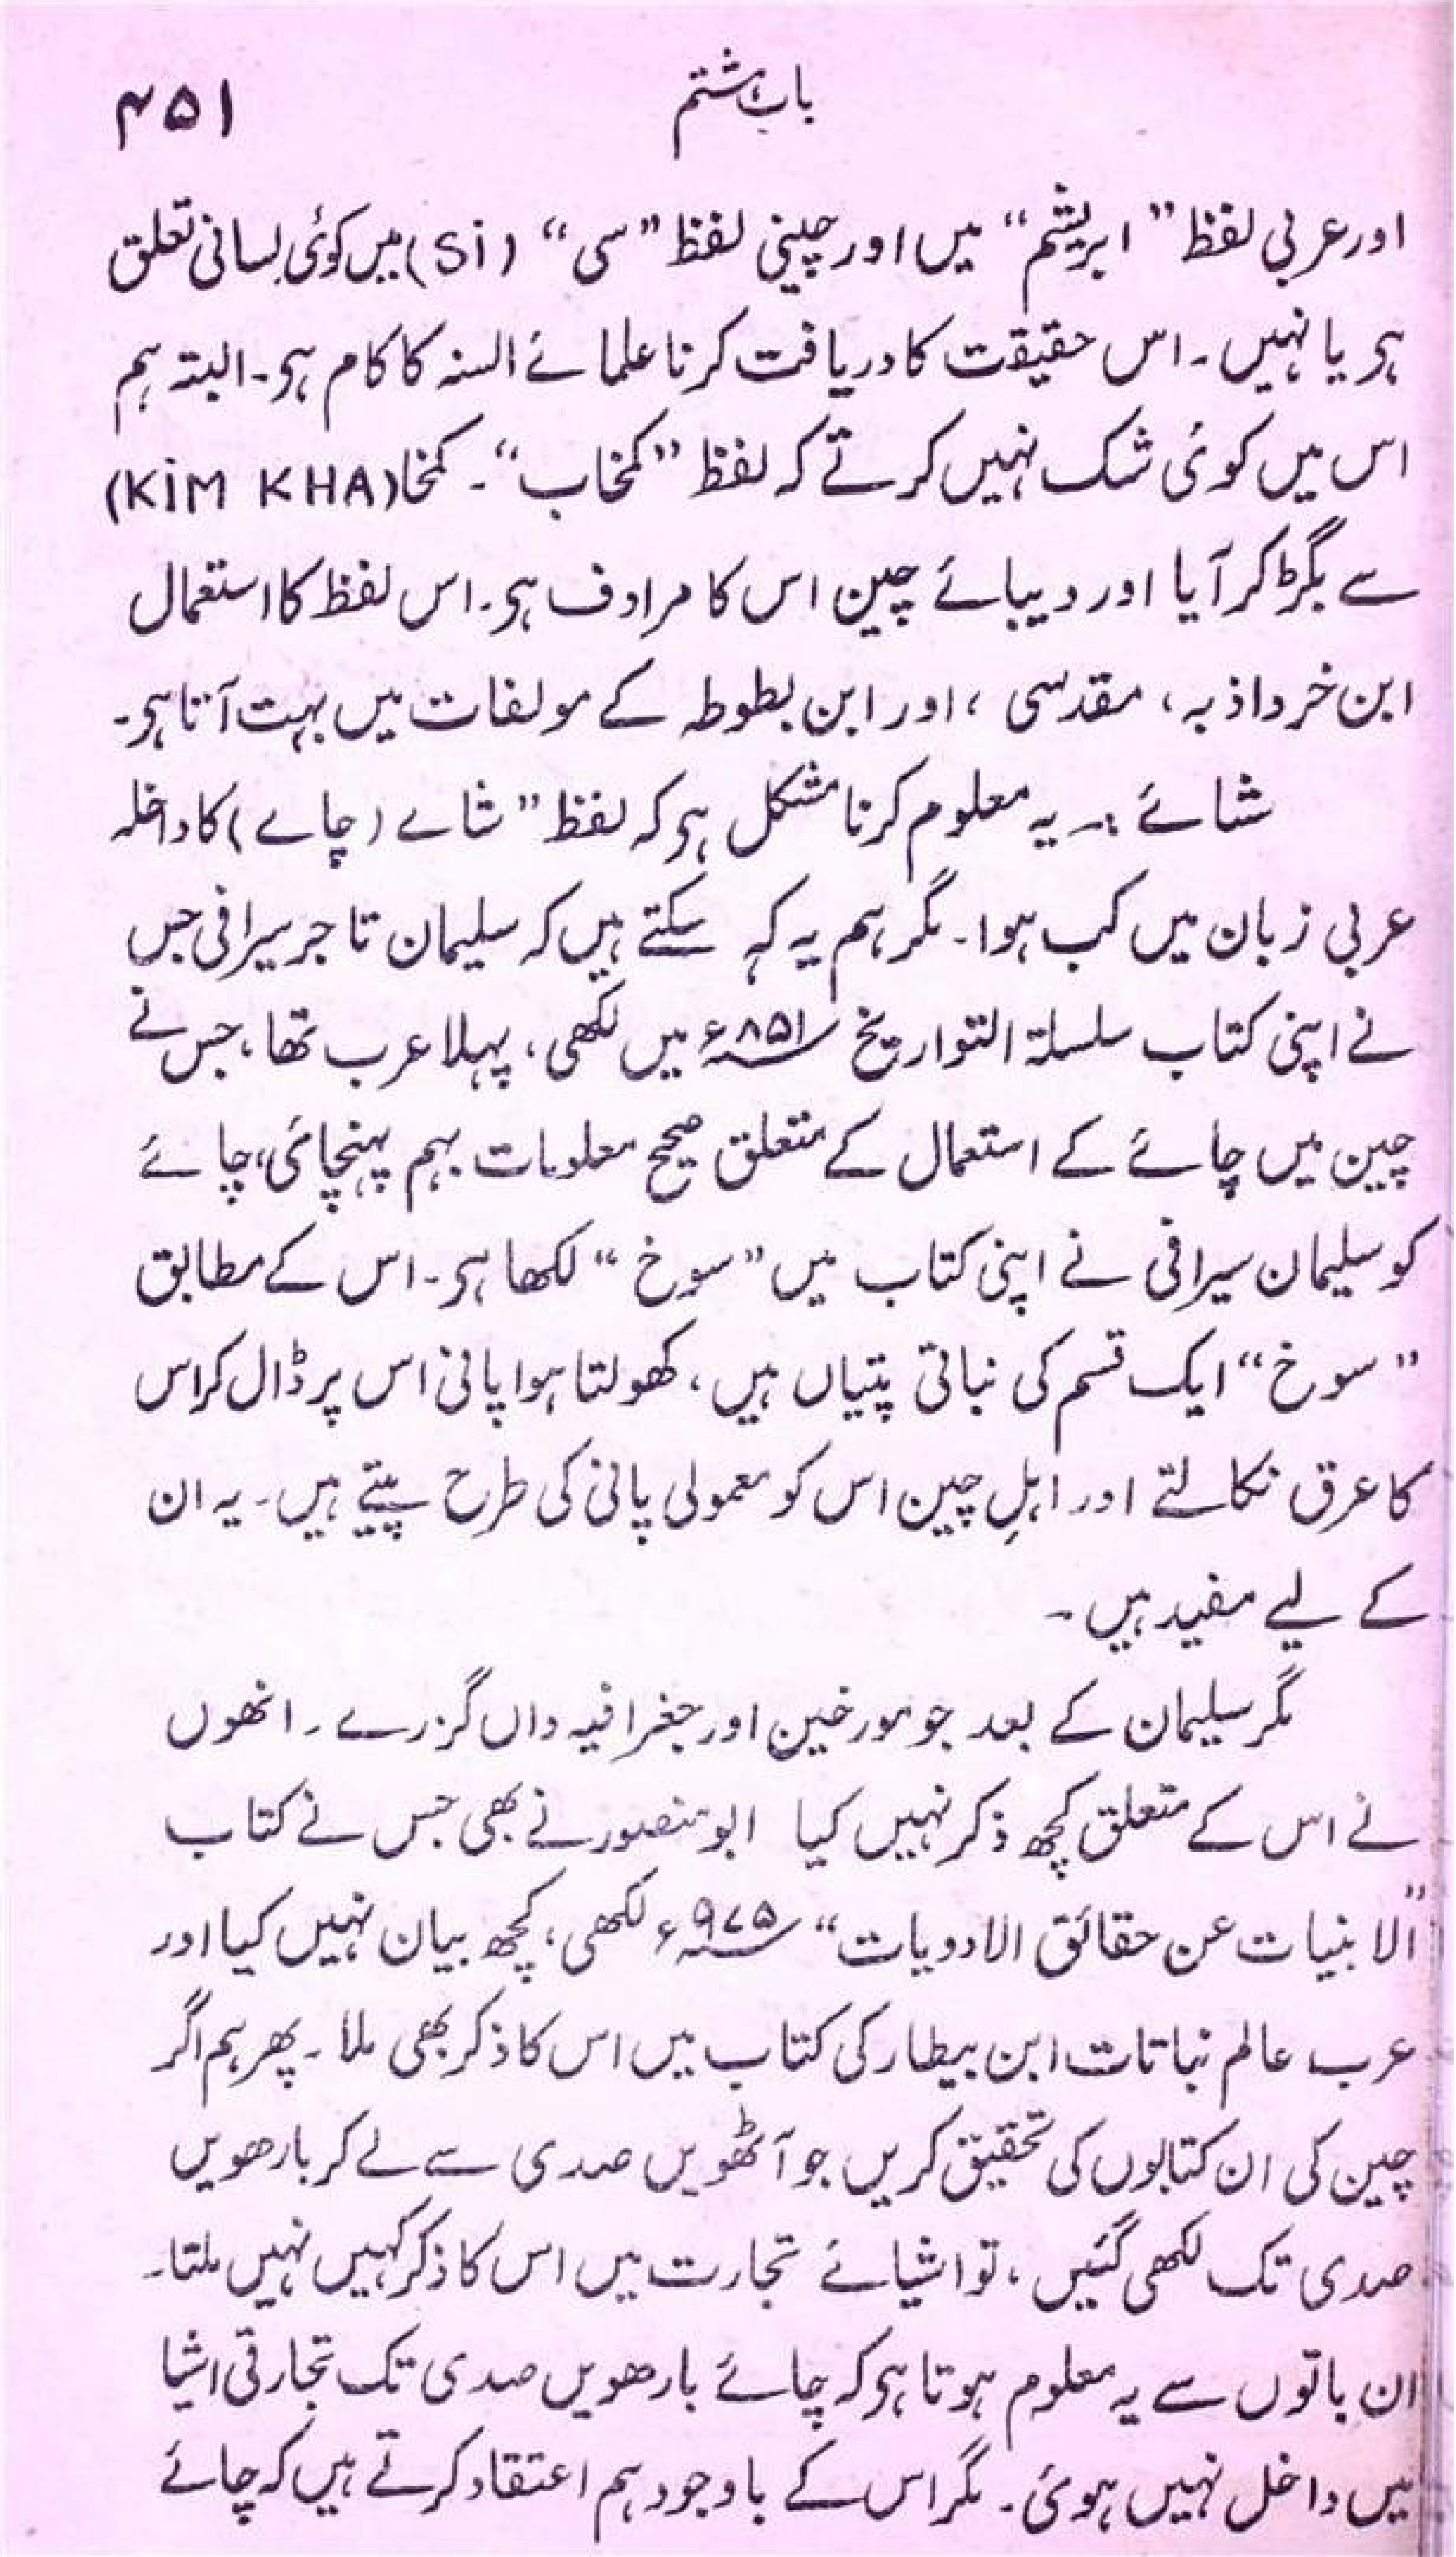 باب ہشتم
۴۵۱
اور عربی لفظ ”ابریشم“ میں اور چینی لفظ ”سی“ (Si) میں کوئی لسانی تعلق
ہی یا نہیں ۔ اس حقیقت کا دریافت کرنا علمائے السنہ کا کام ہی ۔ البتہ ہم
اس میں کوئی شک نہیں کرتے کہ لفظ ”کمخاب“ ۔ کمخا (KiM KHA)
سے بگڑ کر آیا اور دیبائے چین اس کا مرادف ہی ۔ اس لفظ کا استعمال
ابن خرداذبہ، مقدسی ، اور ابن بطوطہ کے مولفات میں بہت آتا ہی ۔
شائے :۔ یہ معلوم کرنا مشکل ہی کہ لفظ ”شاے (چاے) کا داخلہ
عربی زبان میں کب ہوا ۔ مگر ہم یہ کہ سکتے ہیں کہ سلیمان تاجر سیرافی جس
نے اپنی کتاب سلسلۃ التواریخ ۸۵۱ء میں لکھی ، پہلا عرب تھا ، جس نے
چین میں چائے کے استعمال کے متعلق صحیح معلومات بہم پہنچائی ، چائے
کو سلیمان سیرافی نے اپنی کتاب میں ”سوخ“ لکھا ہی ۔ اس کے مطابق
”سوخ“ ایک قسم کی نباتی پتیاں ہیں ، کھولتا ہوا پانی اس پر ڈال کر اس
کا عرق نکالتے اور اہلِ چین اس کو معمولی پانی کی طرح پیتے ہیں ۔ یہ ان
کے لیے مفید ہیں ۔
مگر سلیمان کے بعد جو مورخین اور جغرافیہ داں گزرے ۔ انھوں
نے اس کے متعلق کچھ ذکر نہیں کیا ابو منصور نے بھی جس نے کتاب
”الابنیات عن حقائق الادویات“ ۹۷۵ء لکھی ، کچھ بیان نہیں کیا اور
عرب عالم نباتات ابن بیطار کی کتاب میں اس کا ذکر بھی ملا ۔ پھر ہم اگر
چین کی ان کتابوں کی تحقیق کریں جو آٹھویں صدی سے لے کر بارھویں
صدی تک لکھی گئیں ، تو اشیائے تجارت میں اس کا ذکر کہیں نہیں ملتا ۔
ان باتوں سے یہ معلوم ہوتا ہی کہ چائے بارھویں صدی تک تجارتی اشیا
میں داخل نہیں ہوئی ۔ مگر اس کے باوجود ہم اعتقاد کرتے ہیں کہ چائے